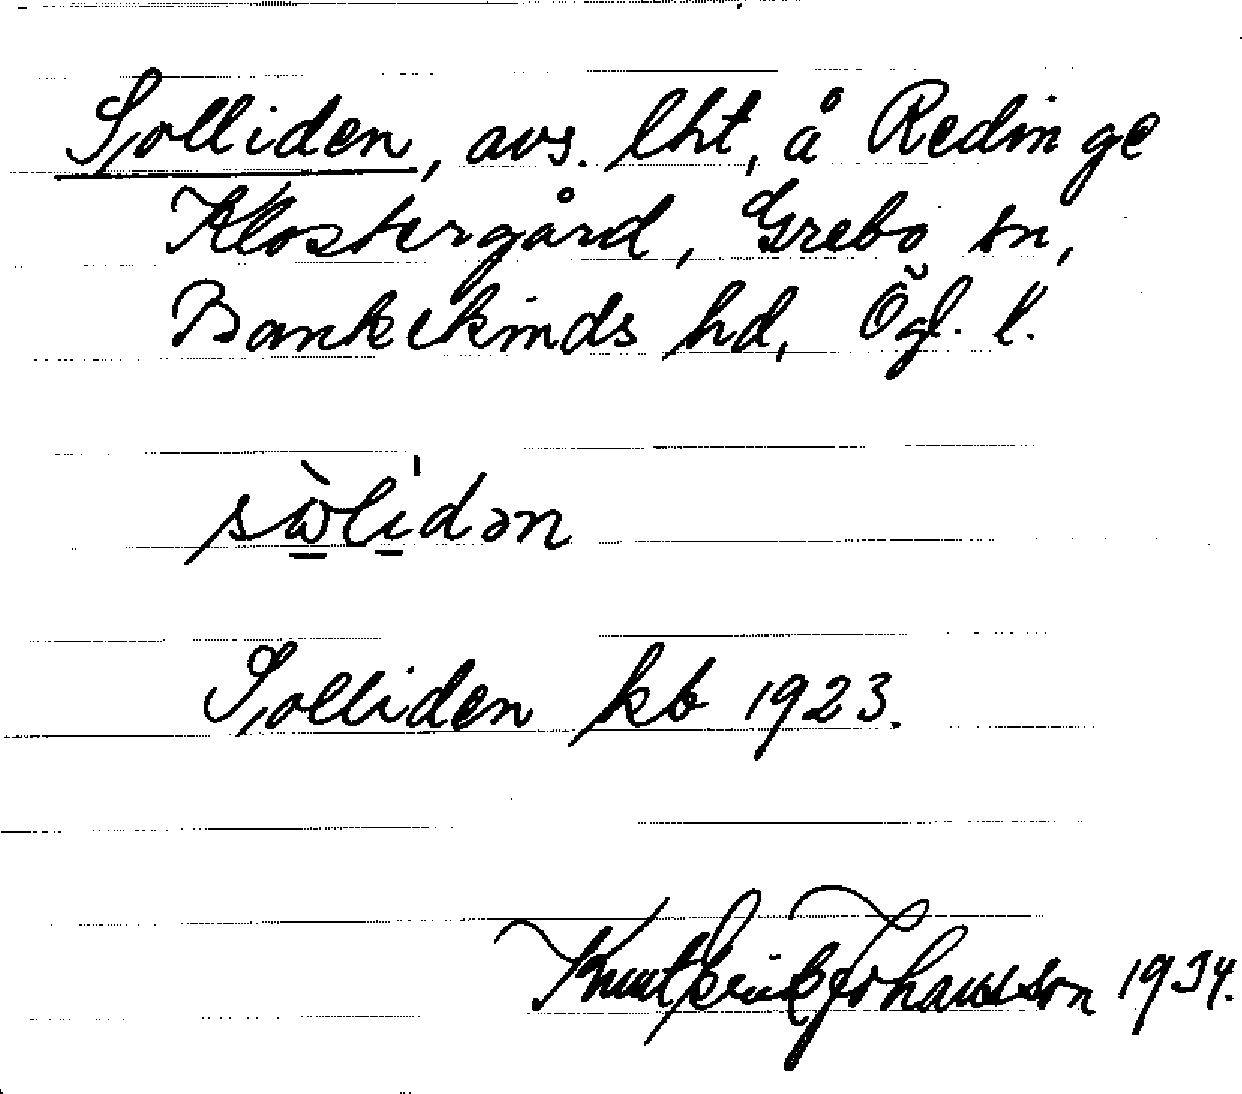 Solliden, avs. lht, å Redinge
Klostergård, Grebo sn,
Bankekinds hd, Ögl. l.
sὼlidən
Solliden kb 1923.
Knut Erik Johansson 1934.